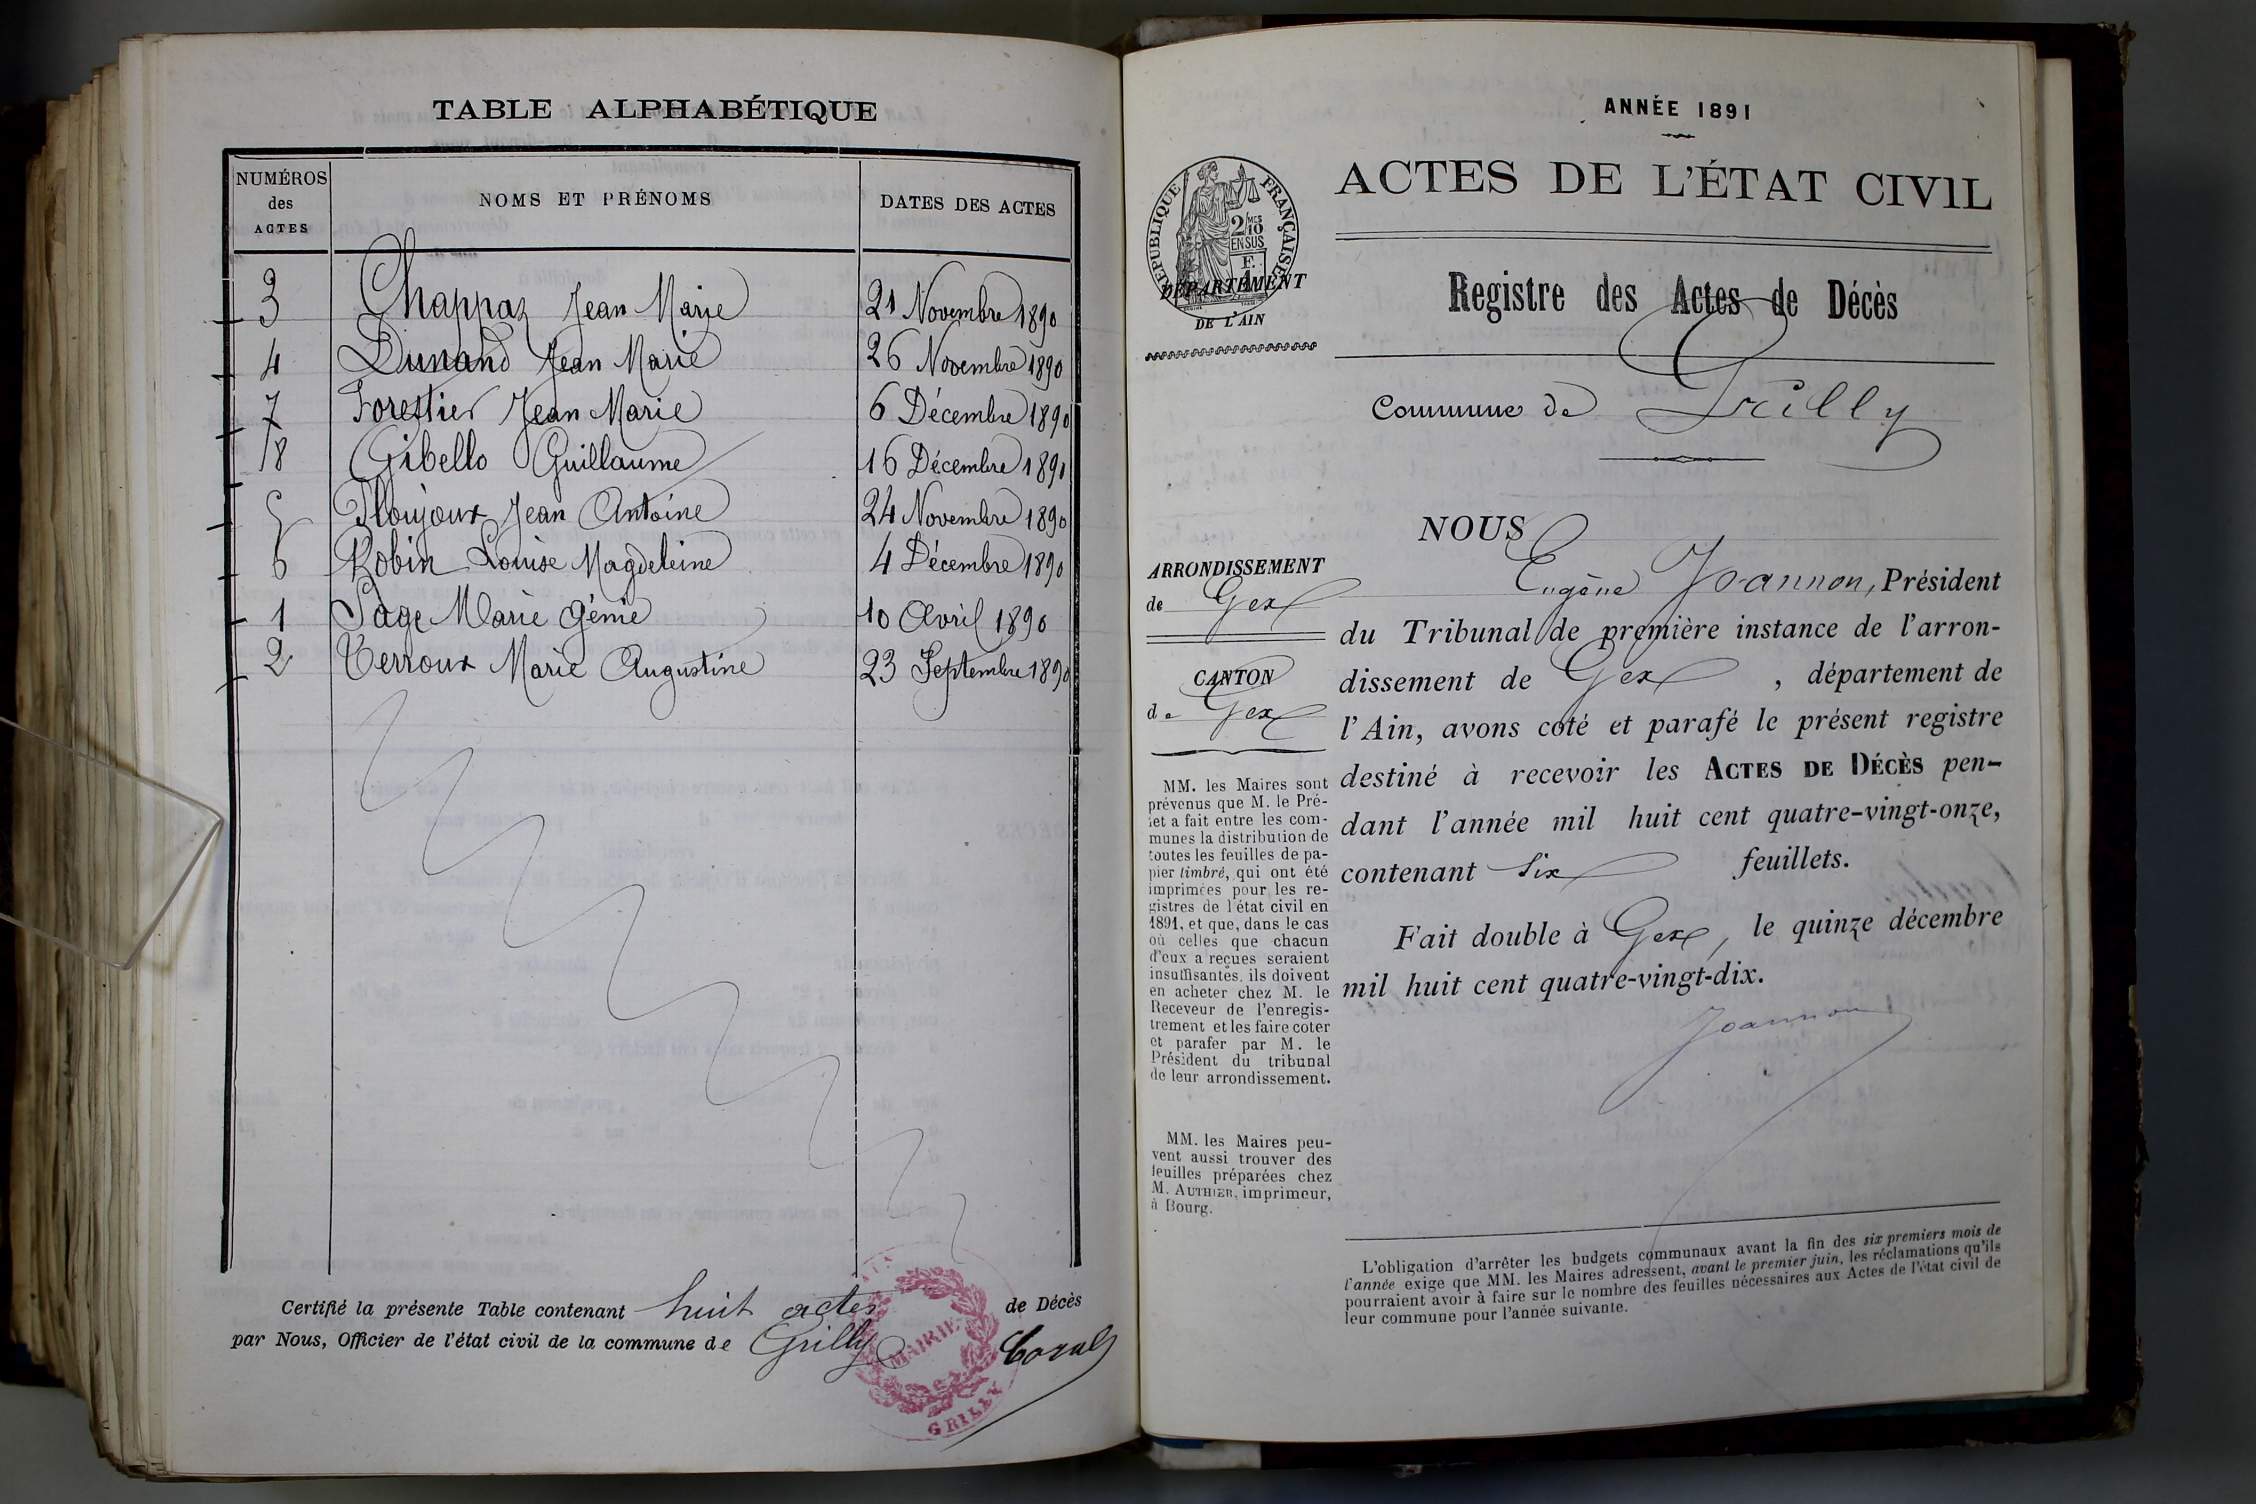 TABLE ALPHABÉTIQUE
NUMÉROS des ACTES
NOMS ET PRÉNOMS
DATES DES ACTES
3 Chappaz Jean Marie 21 Novembre 1890
4 Dunand Jean Marie 26 Novembre 1890
7 Forestier Jean Marie 6 Décembre 1890
8 Gibello Guillaume 16 Décembre 1890
5 Ploujoux Jean Antoine 24 Novembre 1890
6 Robin Louise Magdeleine 4 Décembre 1890
1 Sage Marie Génie 10 Avril 1890
2 Terroux Marie Augustine 23 Septembre 1890
Certifié la présente Table contenant huit actes de Décès
par Nous, Officier de l'état civil de la commune de Grilly
MAIRIE
GRILLY
ANNÉE 1891
RÉPUBLIQUE FRANÇAISE
2/10 MES
EN SUS
F.
1
DÉPARTEMENT
DE L'AIN
ACTES DE L'ÉTAT CIVIL
Registre des Actes de Décès
Commune de Grilly
ARRONDISSEMENT
de Gex
CANTON
de Gex
MM. les Maires sont
prévenus que M. le Pré-
fet a fait entre les com-
munes la distribution de
toutes les feuilles de pa-
pier timbré, qui ont été
imprimées pour les re-
gistres de l'état civil en
1891, et que, dans le cas
où celles que chacun
d'eux a reçues seraient
insuffisantes, ils doivent
en acheter chez M. le
Receveur de l'enregis-
trement et les faire coter
et parafer par M. le
Président du tribunal
de leur arrondissement.
MM. les Maires peu-
vent aussi trouver des
feuilles préparées chez
M. AUTHIER, imprimeur,
à Bourg.
NOUS
Eugène Joannon, Président
du Tribunal de première instance de l'arron-
dissement de Gex, département de
l'Ain, avons coté et parafé le présent registre
destiné à recevoir les ACTES DE DÉCÈS pen-
dant l'année mil huit cent quatre-vingt-onze,
contenant six feuillets.
Fait double à Gex, le quinze décembre
mil huit cent quatre-vingt-dix.
Joannon
L'obligation d'arrêter les budgets communaux avant la fin des six premiers mois de
l'année exige que MM. les Maires adressent, avant le premier juin, les réclamations qu'ils
pourraient avoir à faire sur le nombre des feuilles nécessaires aux Actes de l'état civil de
leur commune pour l'année suivante.